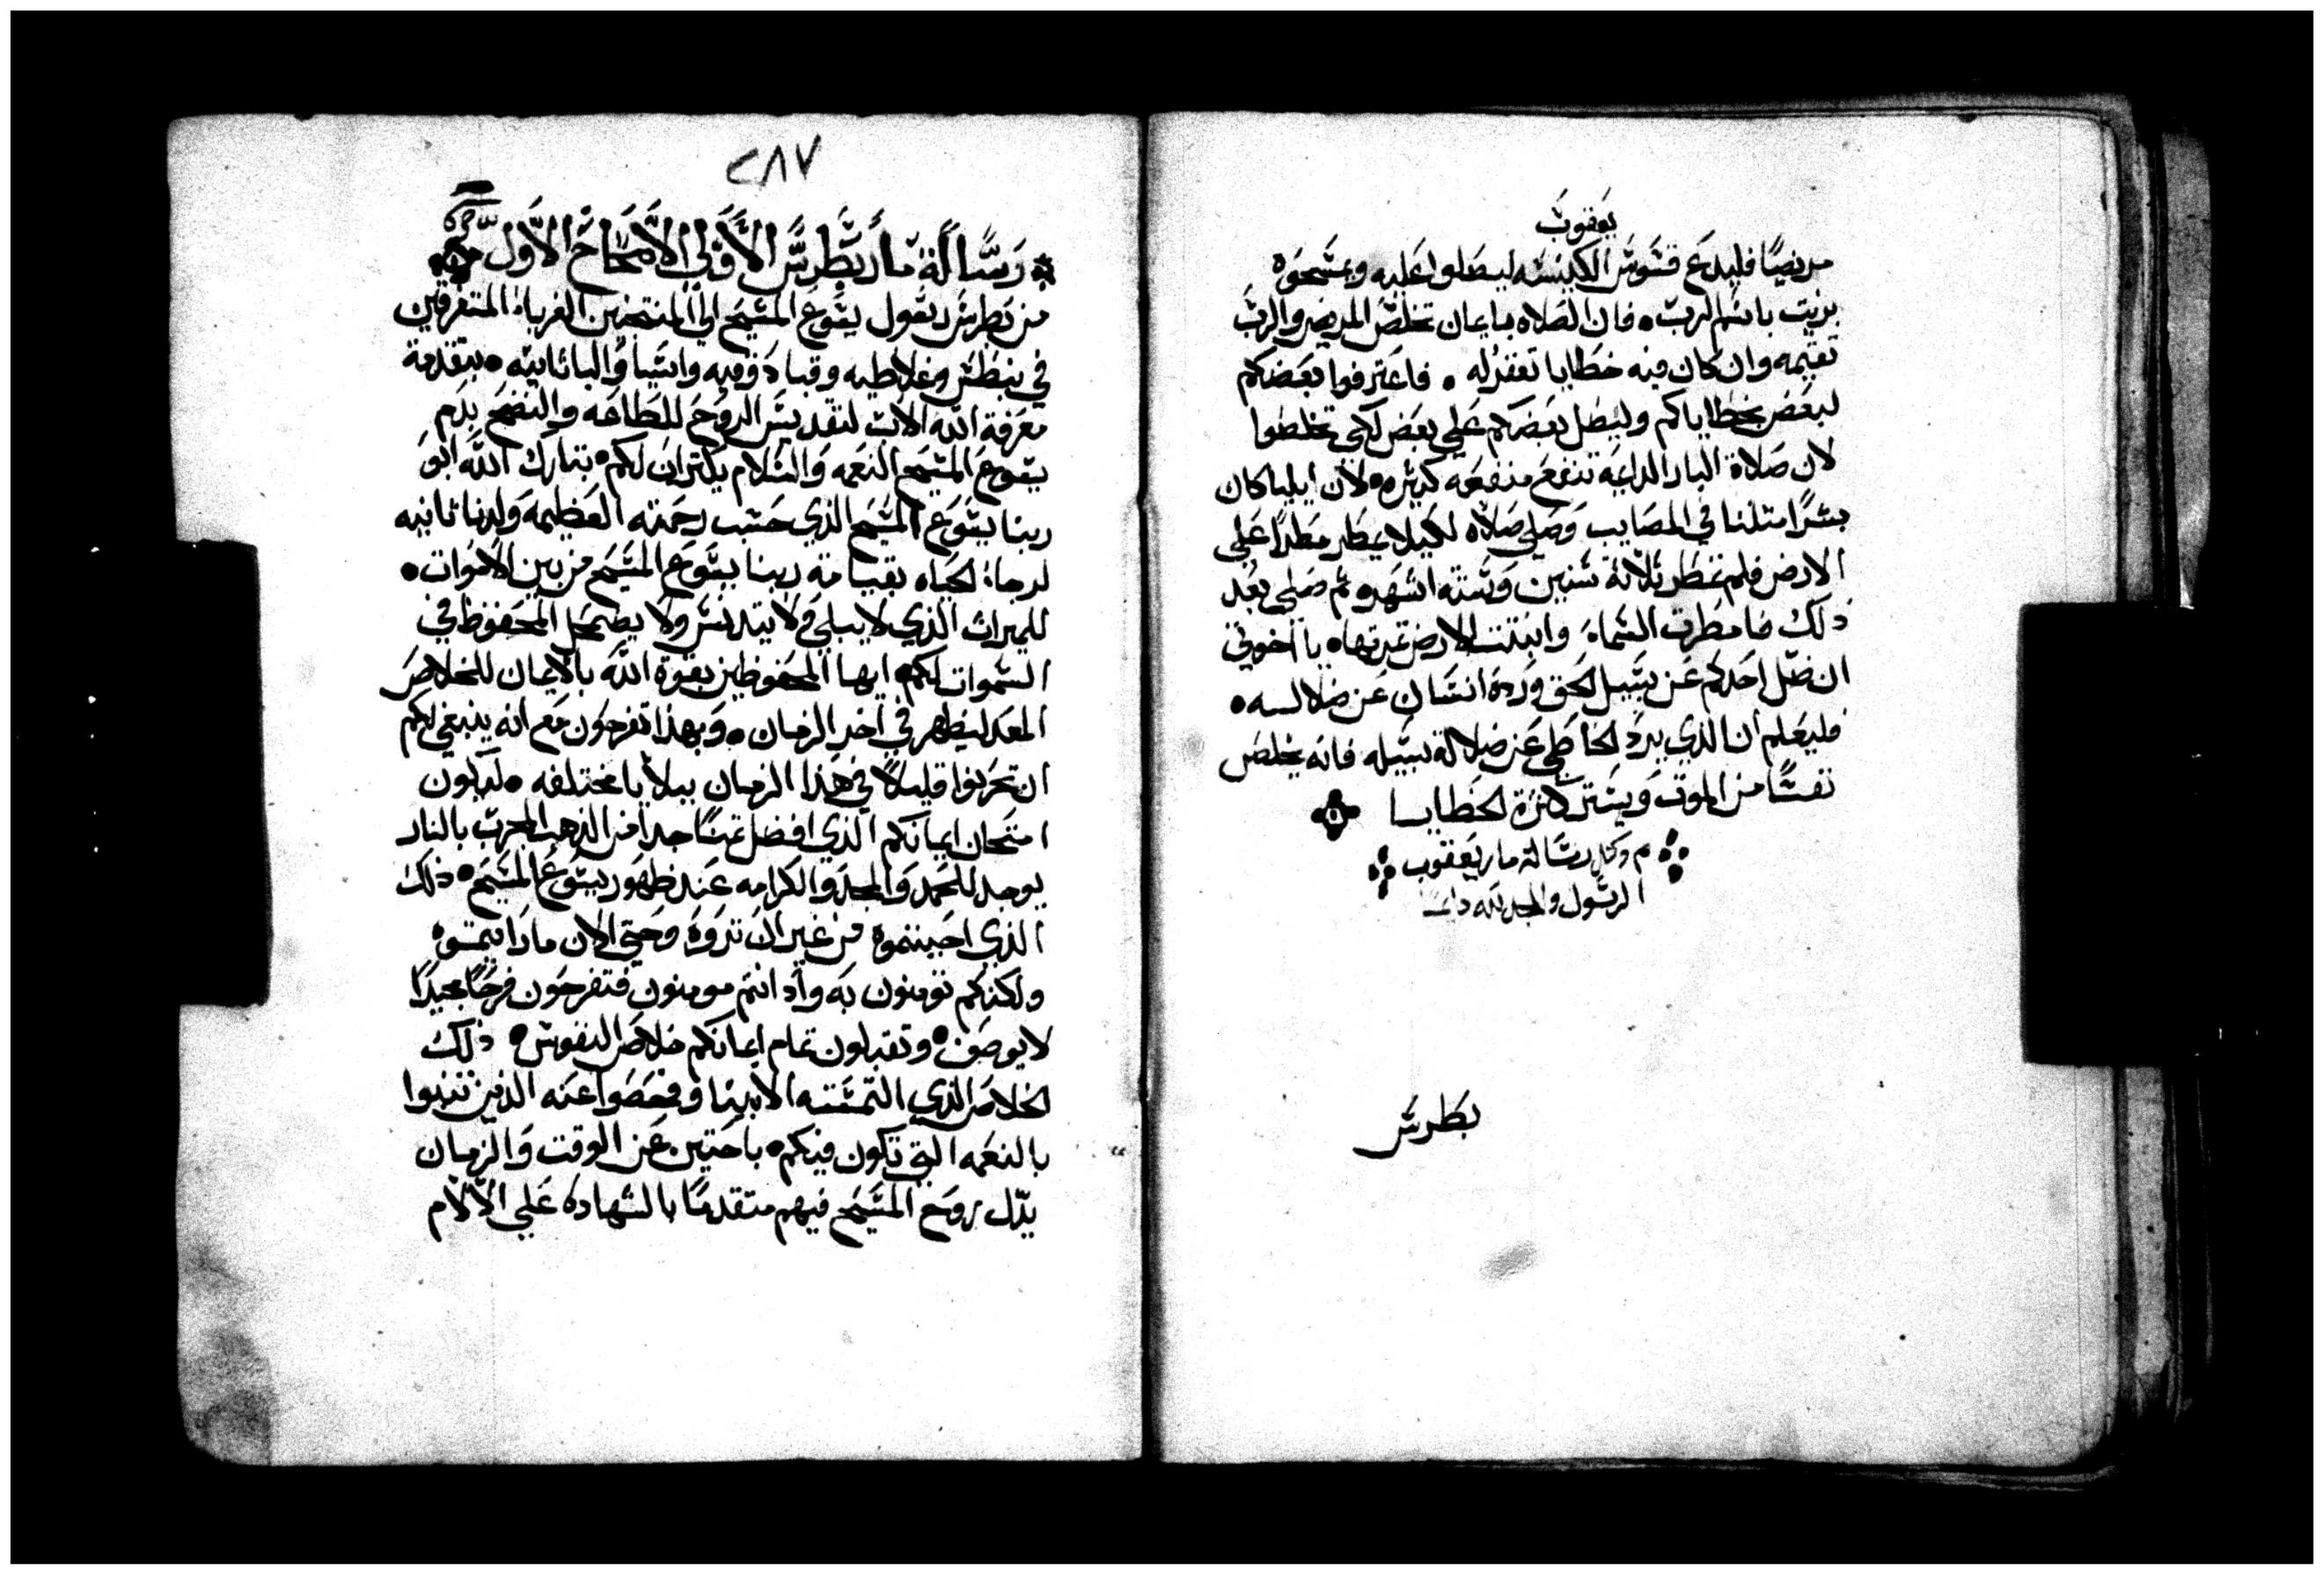 يعقوب
مريضًا فليدع قسوس الكنيسه ليصلوا عليه ويمسحوه
بزيت باسم الرب. فان الصلاه بايمان تخلص المريض والرب
تقيمه وان كان فيه خطايا تغفر له. فاعترفوا بعضكم
لبعض بخطاياكم وليصل بعضكم علي بعض لكي تخلصوا
لان صلاة البار الداعيه تنفع منفعه كثيره. لان ايليا كان
بشرًا مثلنا في المصايب وصلي صلاه لكيلا يمطر مطرًا علي
الارض فلم تمطر ثلاثة سنين وستة اشهر. ثم صلي بعد
ذلك فامطرت السماء وانبتت الارض ثمرتها. يا اخوتي
ان ضل احدكم عن سبيل الحق ورده انسان عن ضلالته.
فليعلم ان الذي يرد الخاطي عن ضلالة سبيله فانه يخلص
نفسًا من الموت ويستر كثرة الخطايا
تم وكمل رسالة مار يعقوب
الرسول والمجد لله دايمًا
بطرس
٢٨٧
رسالة مار بطرس الاولي الاصحاح الاول
من بطرس رسول يسوع المسيح الي المنتخبين الغرباء المتفرقين
في بنطس وغلاطيه وقبادوفيه واسيا والباثانيه. بتقدمة
معرفة الله الاب لتقديس الروح للطاعه والنضح بدم
يسوع المسيح النعمه والسلام يكتران لكم. تبارك الله ابو
ربنا يسوع المسيح الذي حسب رحمته العظيمه ولدنا ثانيه
لرجاء الحياه بقيامة ربنا يسوع المسيح من بين الاموات.
للميراث الذي لا يبلي ولا يتدنس ولا يضمحل المحفوظ في
السموات لكم. ايها المحفوظين بقوة الله بالايمان للخلاص
المعد ليظهر في اخر الزمان. وبهذا تفرحون مع انه ينبغي لكم
ان تحزنوا قليلاً في هذا الزمان ببلايا مختلفه. ليكون
امتحان ايمانكم الذي افضل ثمنًا جدا من الذهب المجرب بالنار
يوجد للحمد والمجد والكرامه عند ظهور يسوع المسيح. ذلك
الذي احببتموه من غير ان تروه وحتي الان ما رايتموه
ولكنكم تومنون به واذ انتم مومنون فتفرحون فرحًا مجيدًا
لا يوصف. وتقبلون تمام ايمانكم خلاص النفوس. ذلك
الخلاص الذي التمسته الانبيا وفحصوا عنه الذين تنبوا
بالنعمه التي تكون فيكم. باحتين عن الوقت والزمان
يدل روح المسيح فيهم متقدمًا بالشهاده علي الالام